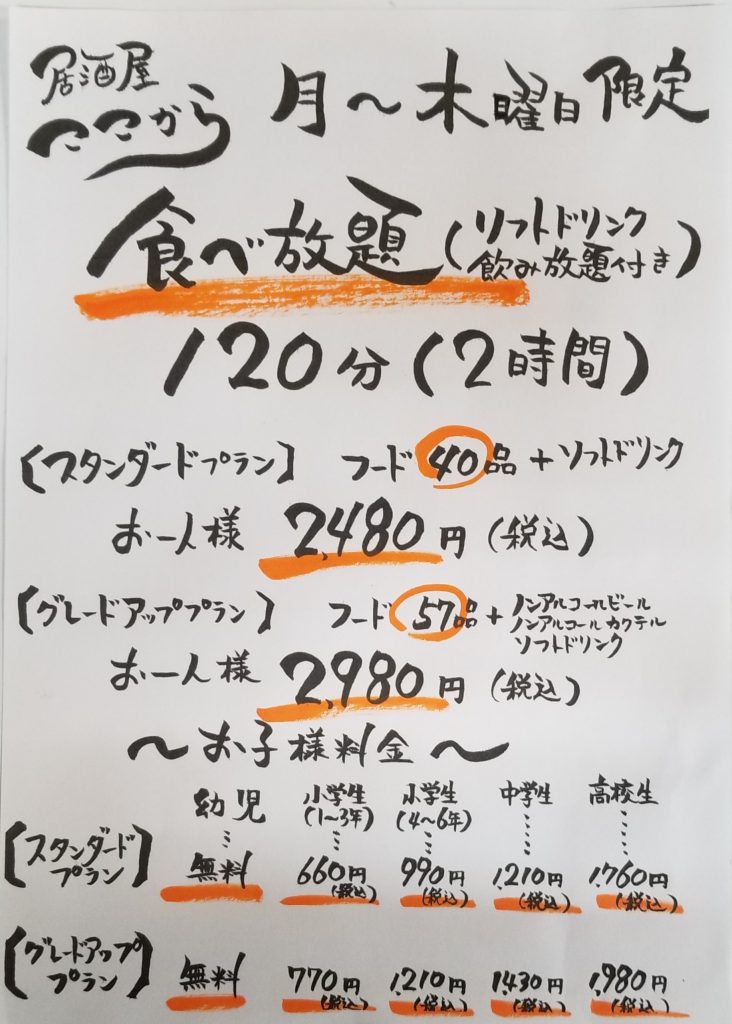 居酒屋
ここから
月〜木曜日限定
食べ放題(ソフトドリンク
飲み放題付き)
120分(2時間)
【スタンダードプラン】 フード 40品 + ソフトドリンク
お一人様 2,480円(税込)
【グレードアッププラン】 フード 57品 + ノンアルコールビール
ノンアルコールカクテル
ソフトドリンク
お一人様 2,980円(税込)
〜お子様料金〜
幼児 小学生(1〜3年) 小学生(4〜6年) 中学生 高校生
【スタンダードプラン】 無料 660円(税込) 990円(税込) 1,210円(税込) 1,760円(税込)
【グレードアッププラン】 無料 770円(税込) 1,210円(税込) 1430円(税込) 1,980円(税込)